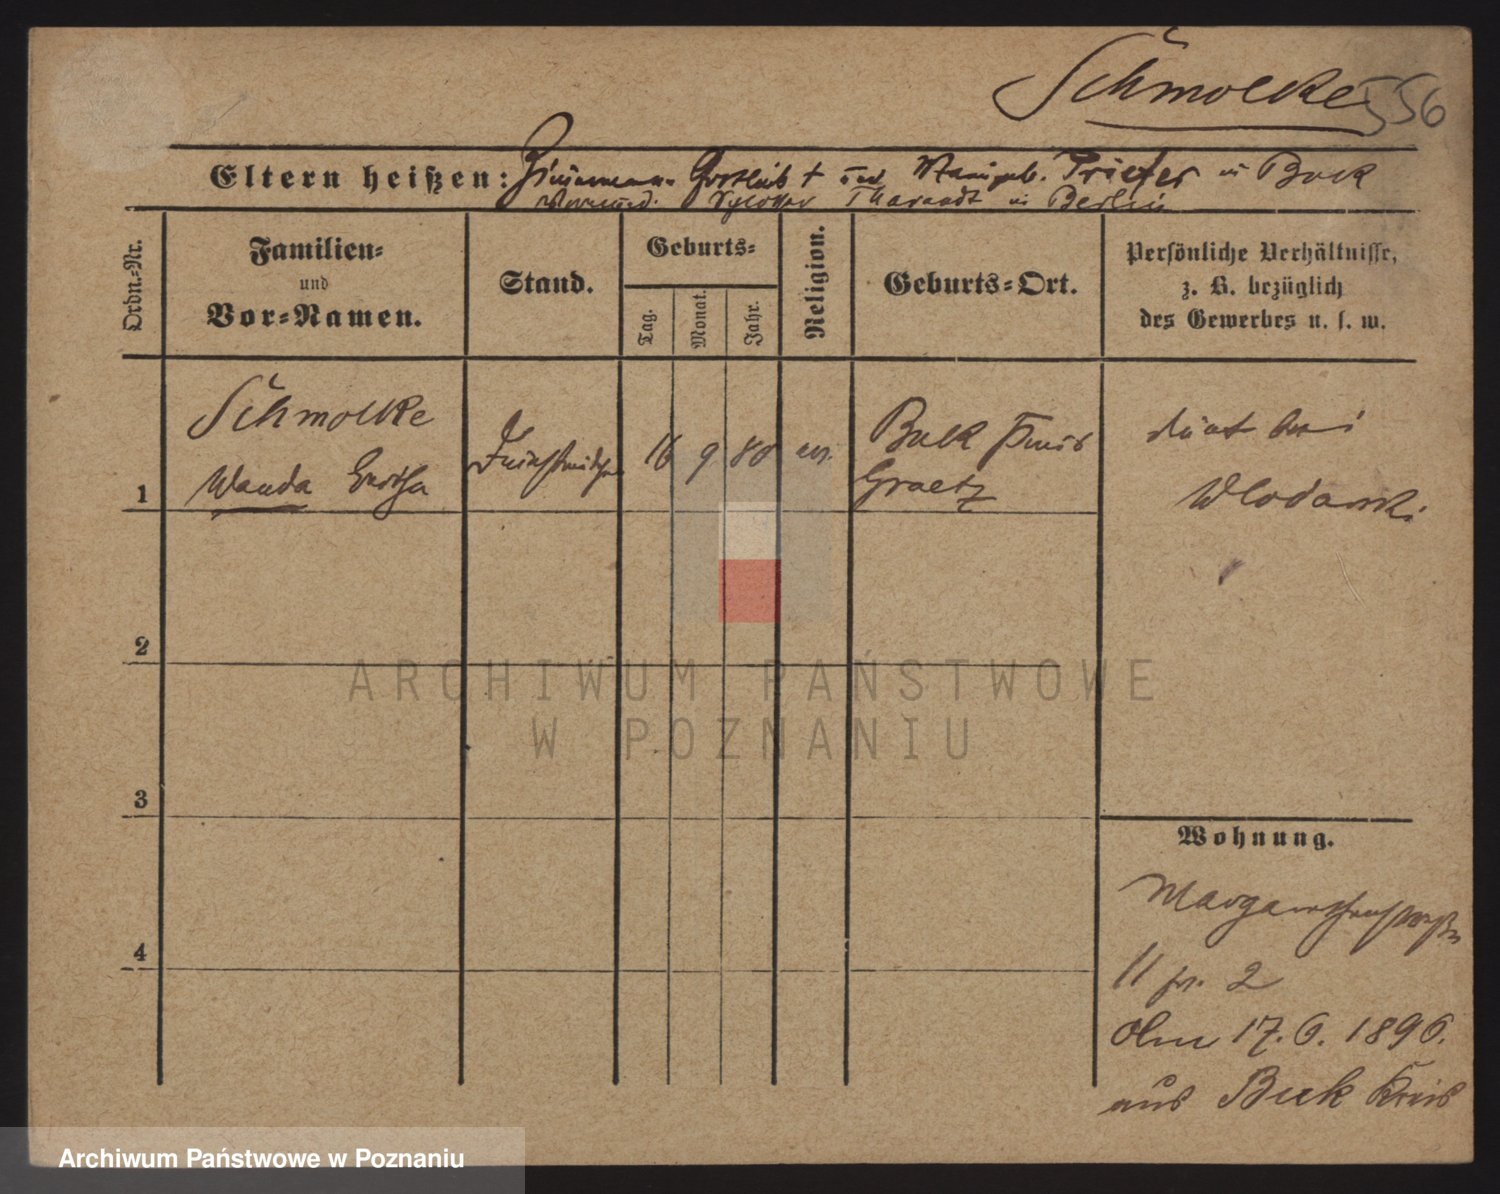 Schmolke
556
Eltern heißen: Zimmermann Gottlieb + und Priefer in Buk
Vormund. Tharandt in Berlin
Ordn.-Nr.
Familien-
und
Vor-Namen.
Stand.
Geburts-
Tag.
Monat.
Jahr.
Religion.
Geburts-Ort.
Persönliche Verhältnisse,
z. B. bezüglich
des Gewerbes u. s. w.
1
Schmolke
Wanda Bertha
Dienstmädchen
16
9
80
ev.
Buk Kreis
Graetz
dient bei
Wlodarski
2
3
4
Wohnung.
Margarethenstraße
11 pr. 2
17. 6. 1896.
aus Buk Kreis
ARCHIWUM PAŃSTWOWE
W POZNANIU
Archiwum Państwowe w Poznaniu